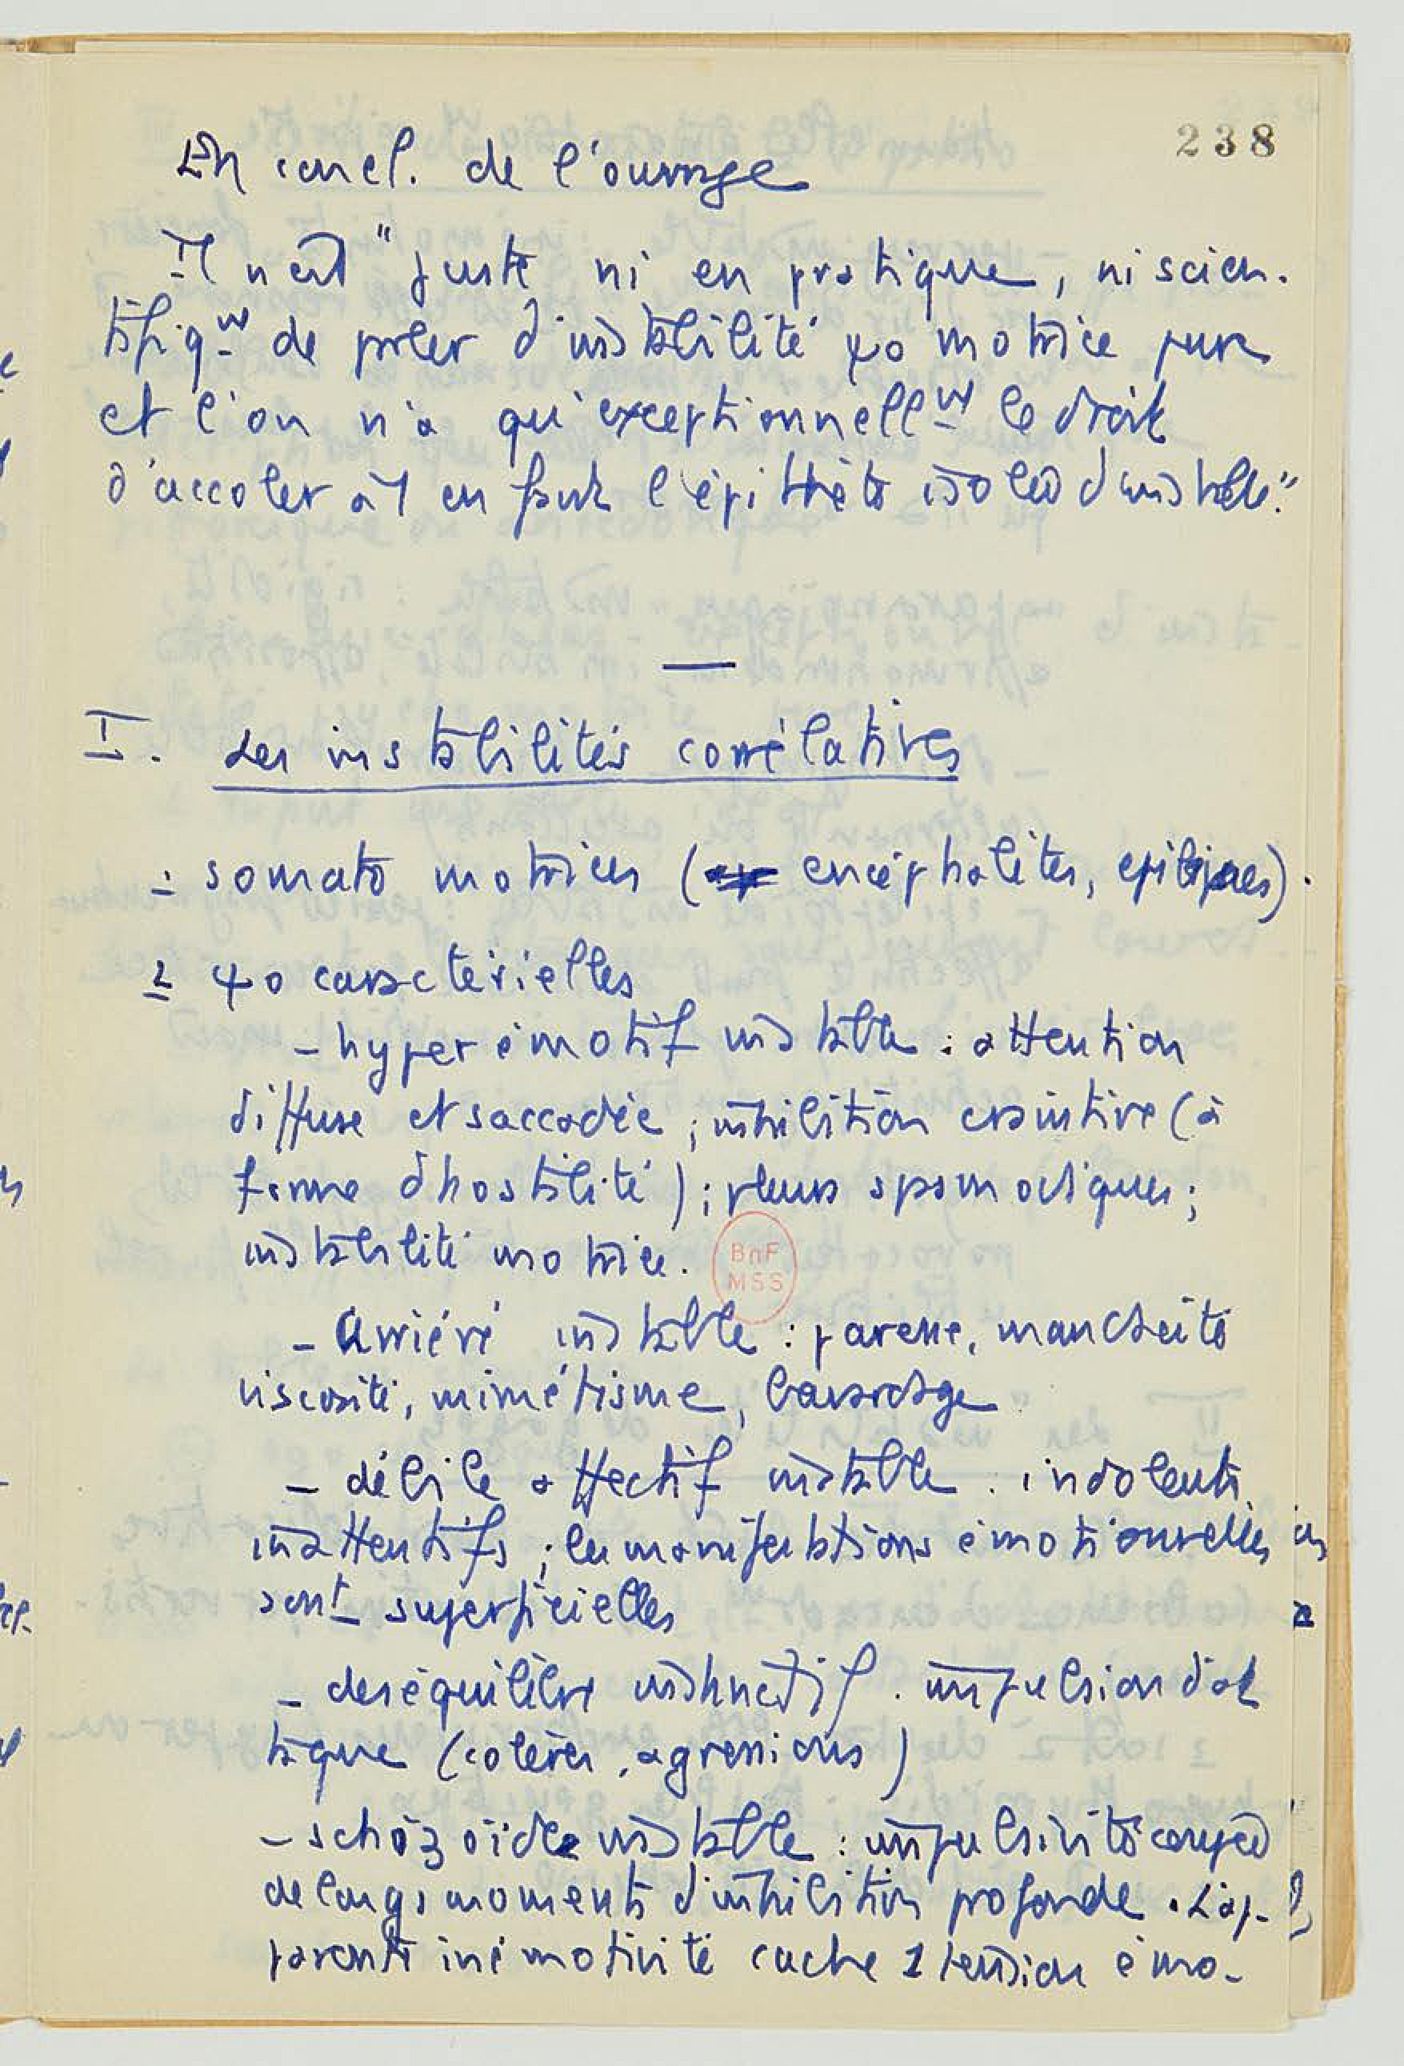 238
En concl. de l'ouvrage
Il n'est " juste ni en pratique, ni scien-
tifiqt de parler d'instabilité ψo motrice pure
et l'on n'a qu'exceptionnellt le droit
d'accoler à 1 enfant l'épithète isolée d'instable."
I. Les instabilités corrélatives
1 somato motrices ( encéphalites, epileptiques).
2 ψo caractérielles
- hyperémotif instable : attention
diffuse et saccadée ; inhibition craintive (à
forme d'hostilité) ; pleurs spasmodiques ;
instabilité motrice.
BnF
MSS
- Arriéré instable : paresse,
viscosité, mimétisme, bavardage
- débile affectif instable : indolents
inattentifs ; les manifestations émotionnelles
sont superficielles
- deséquilibre instinctif. impulsion
(colères, agressions)
- schizoïde instable : impulsivité coupée
de longs moments d'inhibition profonde. L'ap-
parente inémotivité cache 1 tension émo-